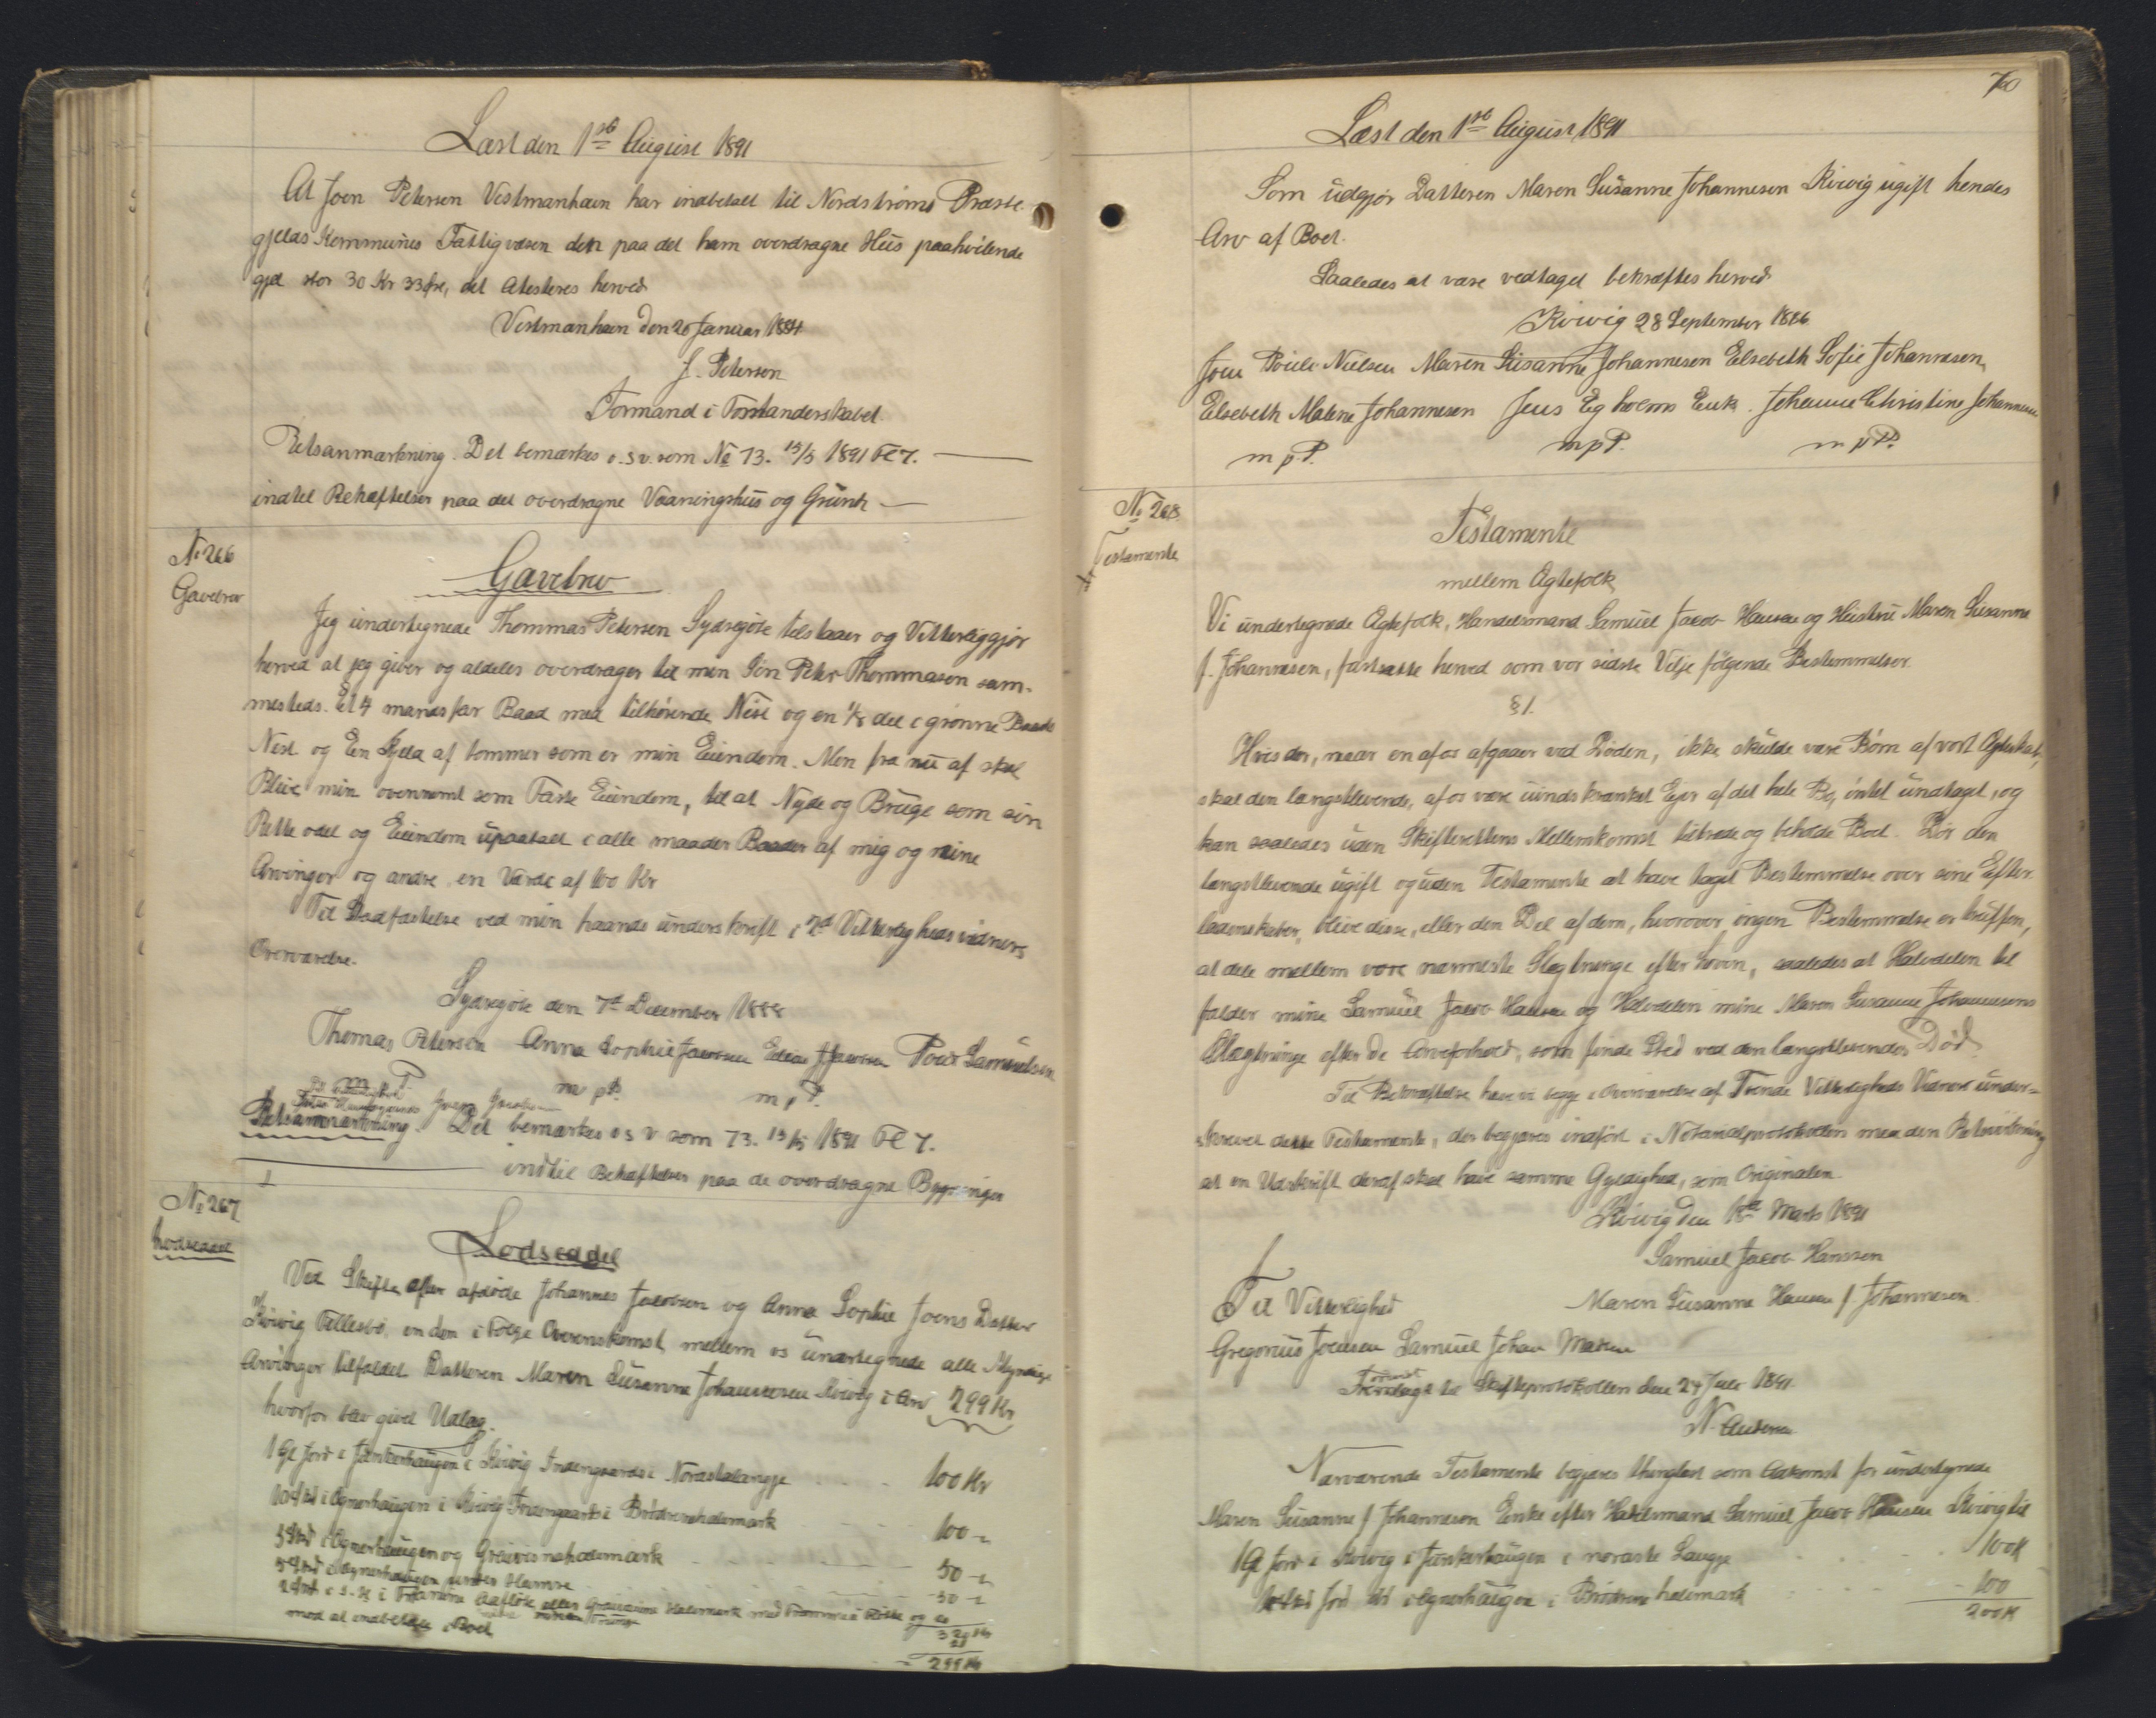 Læst den 1ste August 1891
At Joen Petersen Vestmanhavn har indbetalt til Nordstrømø Præste-
gjelds Kommunes Fattigvæsen den paa det ham overdragne Hus paahvilende
gjæl stor 30 Kr 33 Øre, det Atesteres herved
Vestmanhavn den 20 Januar 1884
J. Petersen
Formand i Forstanderskabet.
Retsanmærkning. Det bemærkes o.s.v. som No 73. 15/5 1891 Fl 7.
indtil Behæftelser paa det overdragne Vaaningshus og Grund
No 266
Gavebrev
Gavebrev
Jeg undertegnede Thommas Petersen Sydregöte tilstaaer og Vitterliggjør
herved at jeg giver og aldeles overdrager til min Søn Peter Thommasen sam-
mesteds. Et 4 mands far Baad med tilhørende Nöst og en 1/8 del i grønne Baads
Nöst og Een Hjeld af tommer som er min Eiendom. Men fra nu af skal
Blive min ovennemt som Faste Eiendom, til at Nyde og Bruge som sin
Rette odel og Eiendom upaatalt i alle maader Baader af mig og mine
Arvinger og andre en Værde af 100 Kr
Til Stadfæstelse ved min haands underskrift i 2d Vitterligheds vidners
Overværelse.
Sydregöte den 7d December 1888
Thomas Petersen Anna Sophie Jacobsen Poul Samuelsen
m p P. m p P.
Retsanmærkning. Det bemærkes o s v som 73. 15/5 1891 Fl 7.
indtil Behæftelser paa de overdragne Bygninger
No 267
Lodseddel
Lodseddel
Ved Skifte efter afdöde Johannes Jacobsen og Anna Sophie Joens Datter
Kvivig Fællesbo, er den i Følge Overenskomst mellem os undertegnede alle Myndige
Arvinger tilfaldet Datteren Maren Susanne Johannesen Kvivig i Arv 299 Kr
hvorfor blev givet Udlæg.
1 Gl Jord i Jánkerhaugen i Kvivig Indengaards i Norastalangje 100 Kr
10 Skd i Ognerhaugen i Kvivig Indengaards i Brödrenehalemark 100 -
5 Skd i Ognerhaugen og Gráivisnahalemark 50 -
5 Skd i Ognerhaugen under Hamre -50 -
mod at indbetale i Boet
299 Kr
70
Læst den 1ste August 1891
Som udgjör Datteren Maren Susanne Johannesen Kvivig ugift hendes
Arv af Boet.
Saaledes at være vedtaget bekræftes herved
Kvivig 28 September 1886
Joen Poule Nielsen Maren Susanne Johannesen Elsebeth Sofie Johannesen,
Elsebeth Malene Johannesen Jens Egholms Enk. Johanne Christine Johannesen
m p P. m p P. m p P.
No 268
Testamente
Testamente
mellem Ægtefolk
Vi undertegnede Ægtefolk, Handelsmand Samuel Jacob Hansen og Hustru Maren Susanne
f. Johannesen, fastsætte herved som vor sidste Vilje følgende Bestemmelser.
§ 1.
Hvis der, naar en af os afgaaer ved Döden, ikke skulde være Börn af vort Ægteskab,
skal den længstlevende, af os være uindskrænket Ejer af det hele Bo, intet undtaget, og
kan saaledes uden Skifterettens Mellemkomst tiltræde og beholde Boet. Dör den
længstlevende ugift og uden Testamente at have taget Bestemmelse over sine Efter
ladenskaber, blive disse, eller den Del af dem, hvorover ingen Bestemmelse er truffen,
at dele mellem vore nærmeste Slægtninge efter Loven, saaledes at Halvdelen til
falder mine Samuel Jacob Hansen og Halvdelen mine Maren Susanne Johannesens
Slægtninge efter de Arveforhold, som finde Sted ved den længstlevendes Död.
Til Bekræftelse have vi begge i Overværelse af Tvende Vitterligheds Vidner under-
skrevet dette Testamente, der begjæres indført i Notarialprotokollen med den Retsvirkning
at en Udskrift deraf skal have samme Gyldighed, som Originalen.
Kvivig den 18d Marts 1891
Samuel Jacob Hanssen
Til Vitterlighed Maren Susanne Hansen f Johannesen
Gregorius Joensen Samuel Johan
Fremlagt til Skifteprotokollen den 24 Juli 1891.
N. Andersen
Nærværende Testamente begjæres thinglæst som Adkomst for undertegnede
Maren Susanne f Johannesen Enke efter Handelsmand Samuel Jacob Hansen Kvivig til
1 Gl Jord i Kvivig i Jánkerhaugen i noraste Langje 100 K
10 Skd Jord i Ognerhaugen i Brödrene halimark 100
200 K